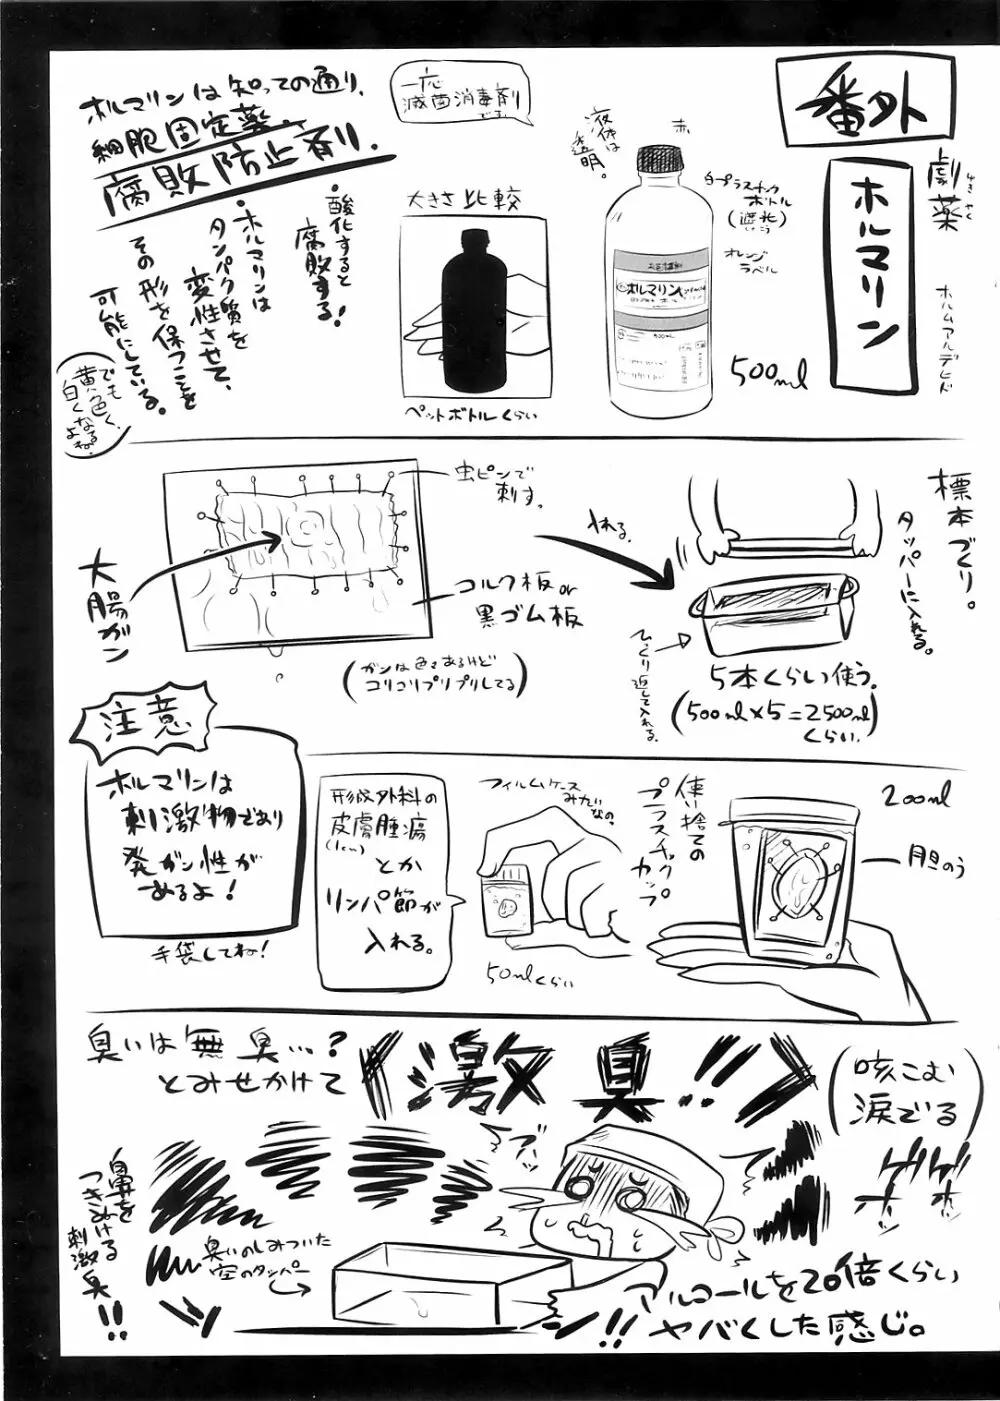 番外
劇薬
げきやく
ホルマリン
ホルムアルデヒド
一応
滅菌消毒剤
です。
液体は
透明。
赤
白プラスチック
ボトル
(遮光)
しゃこう
オレンジ
ラベル
ホルマリン
500ml
大きさ比較
ペットボトルくらい
ホルマリンは知っての通り、
細胞固定薬。
腐敗防止剤。
・酸化すると
腐敗する!
・ホルマリンは
タンパク質を
変性させて、
その形を保つことを
可能にしている。
でも
黄色く、
白くなる
よね。
標本づくり。
タッパーに入れる。
入れる。
ひっくり返して入れる。
5本くらい使う。
(500ml×5=2500ml)
くらい。
虫ピンで
刺す。
コルク板or
黒ゴム板
大腸ガン
(ガンは色々あるけど
コリコリプリプリしてる)
注意
ホルマリンは
刺激物であり
発ガン性が
あるよ!
手袋してね!
200ml
胆のう
使い捨ての
プラスチック
カップ
フィルムケース
みたいなの。
50mlくらい
形成外科の
皮膚腫瘍
(1cm)
とか
リンパ節が
入れる。
臭いは無臭…?
とみせかけて
激臭!!
(咳こむ
涙でる)
ゲホ
ゲホ
ブッ
鼻を
つきぬける
刺激臭!!
臭いのしみついた
空のタッパー
ツーン!!
アルコールを20倍くらい
ヤバくした感じ。